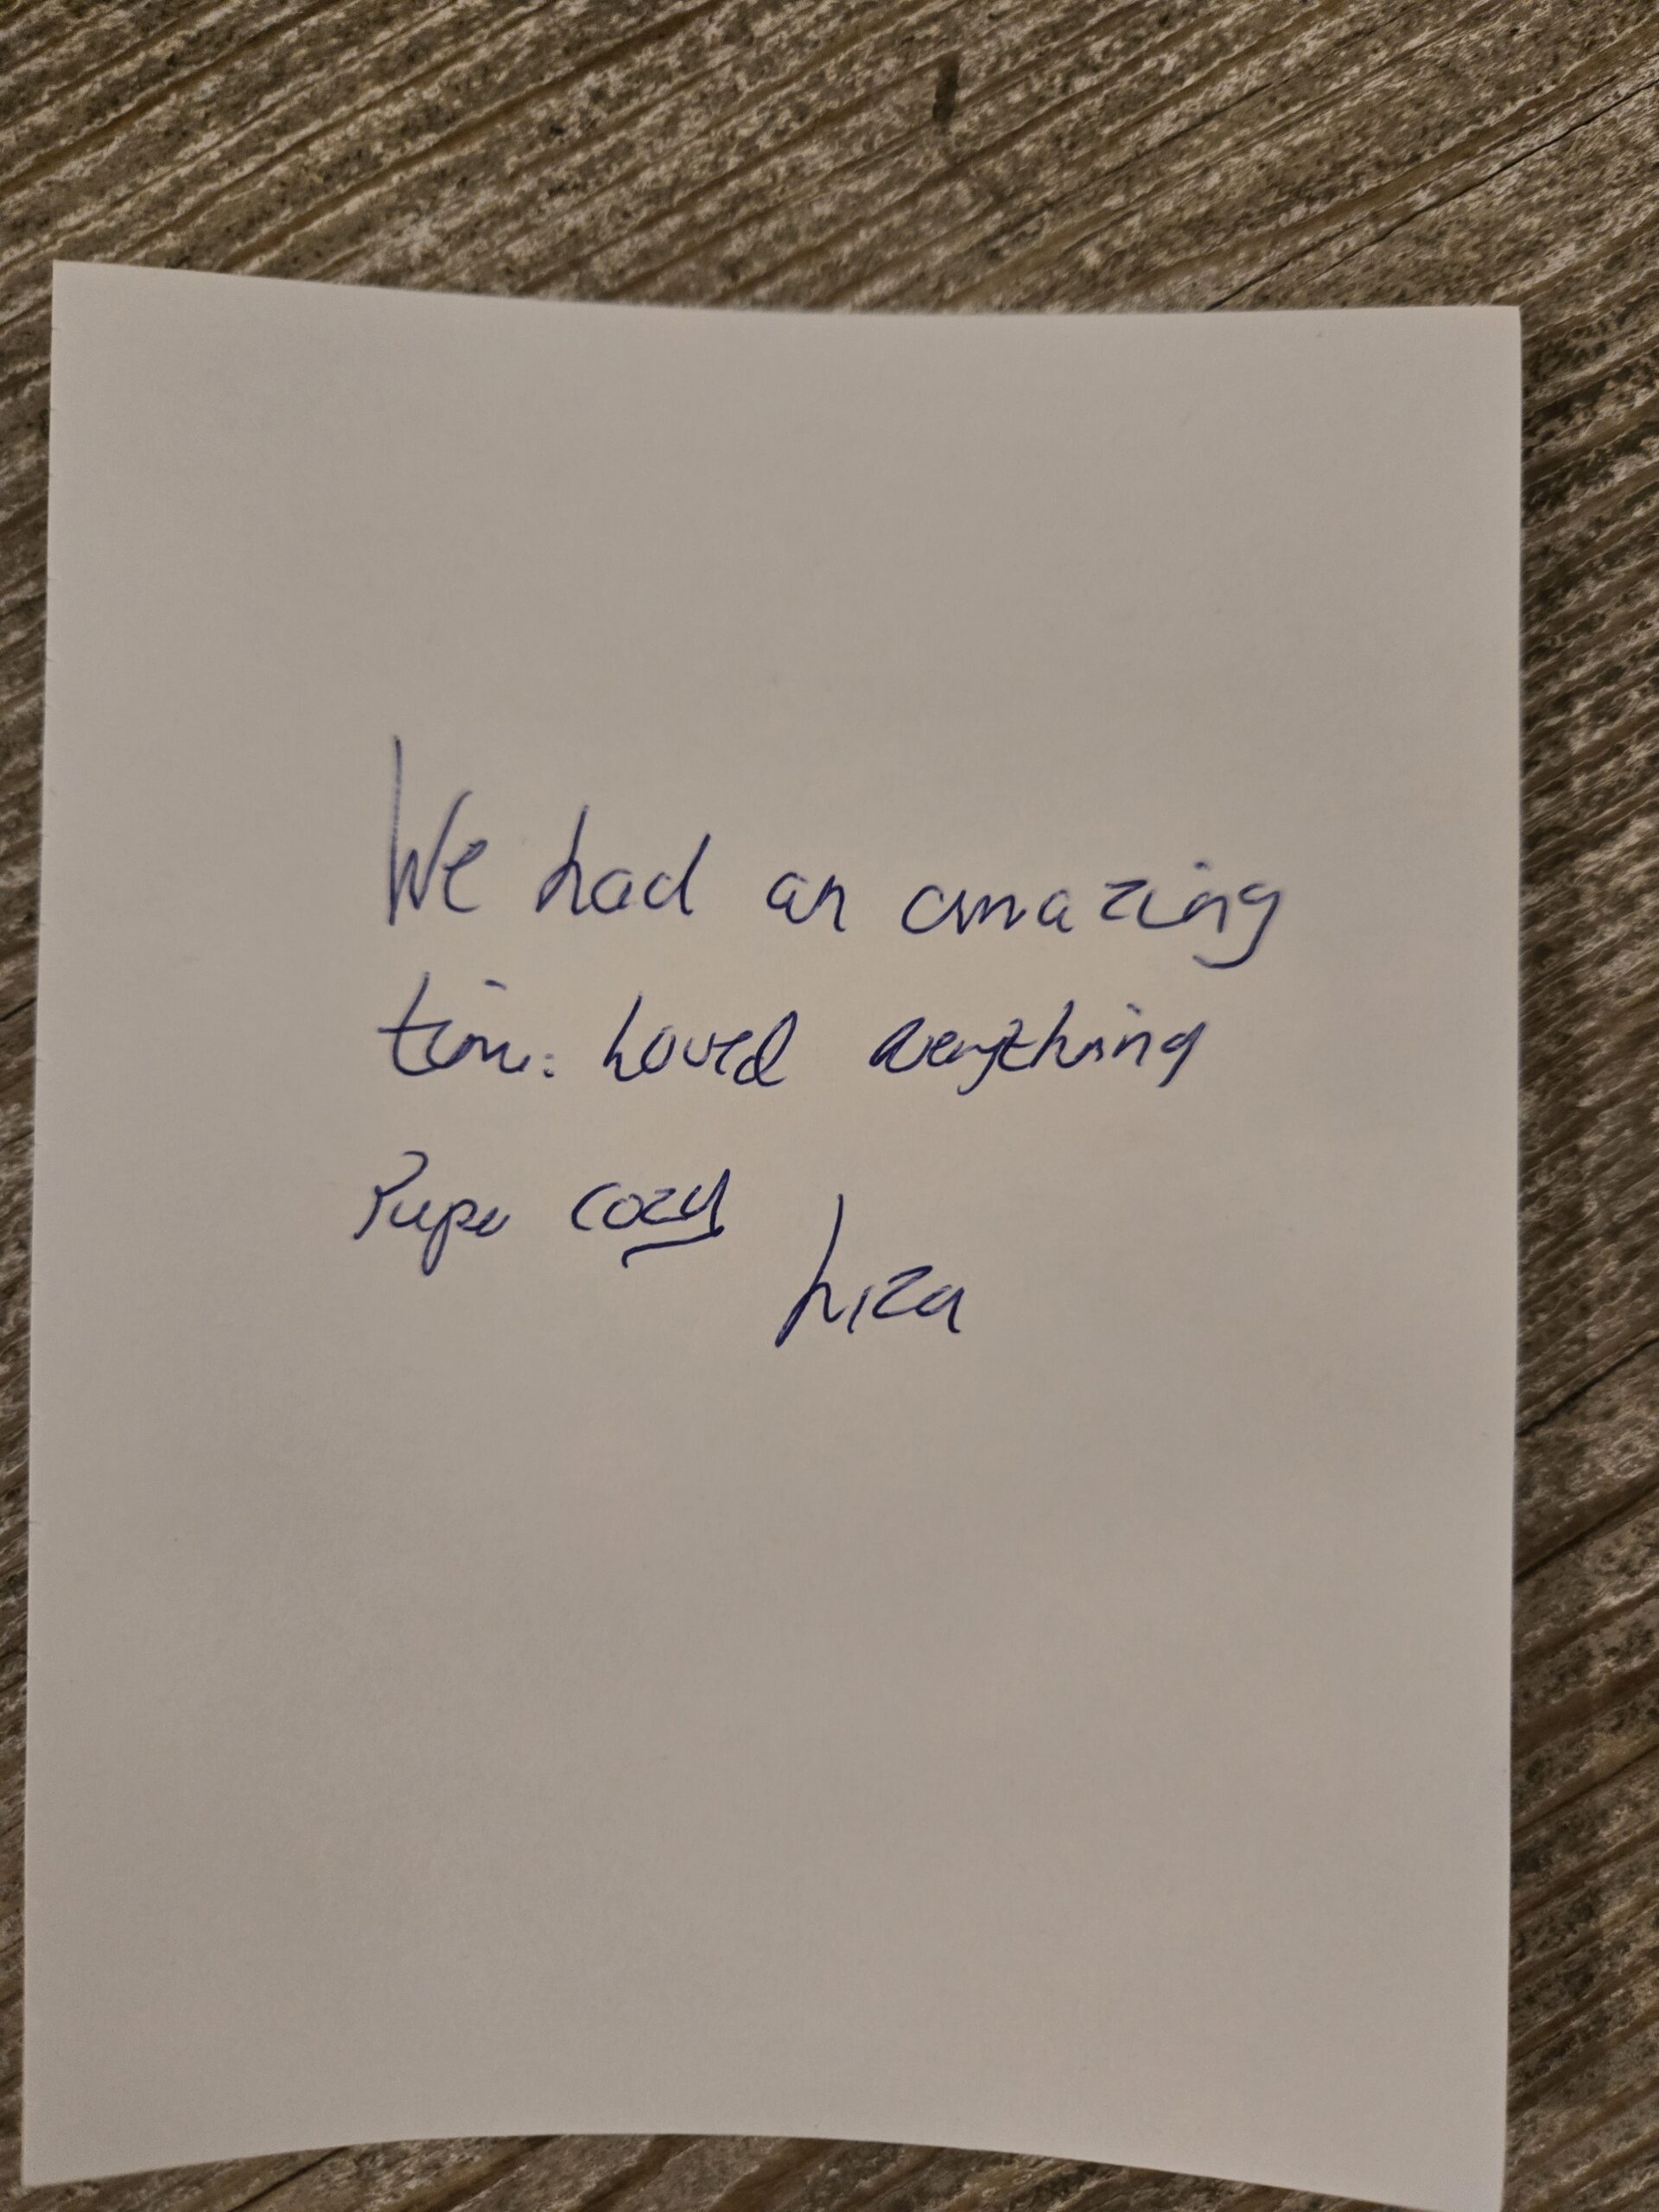 We had an amazing
time. Loved everything
Super cozy
Liza